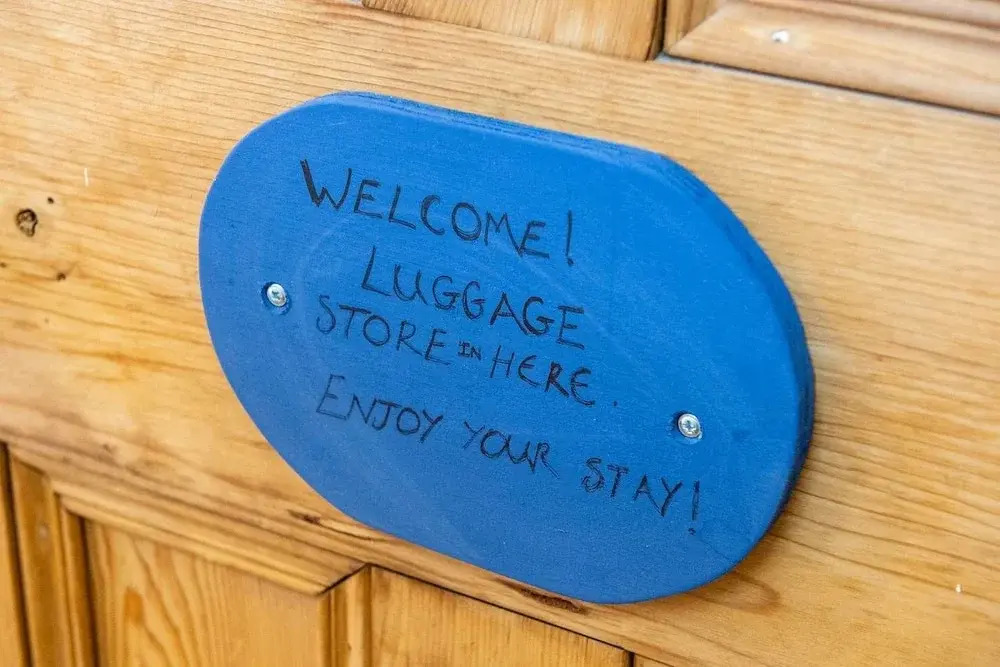 WELCOME!
LUGGAGE
STORE IN HERE.
ENJOY YOUR STAY!